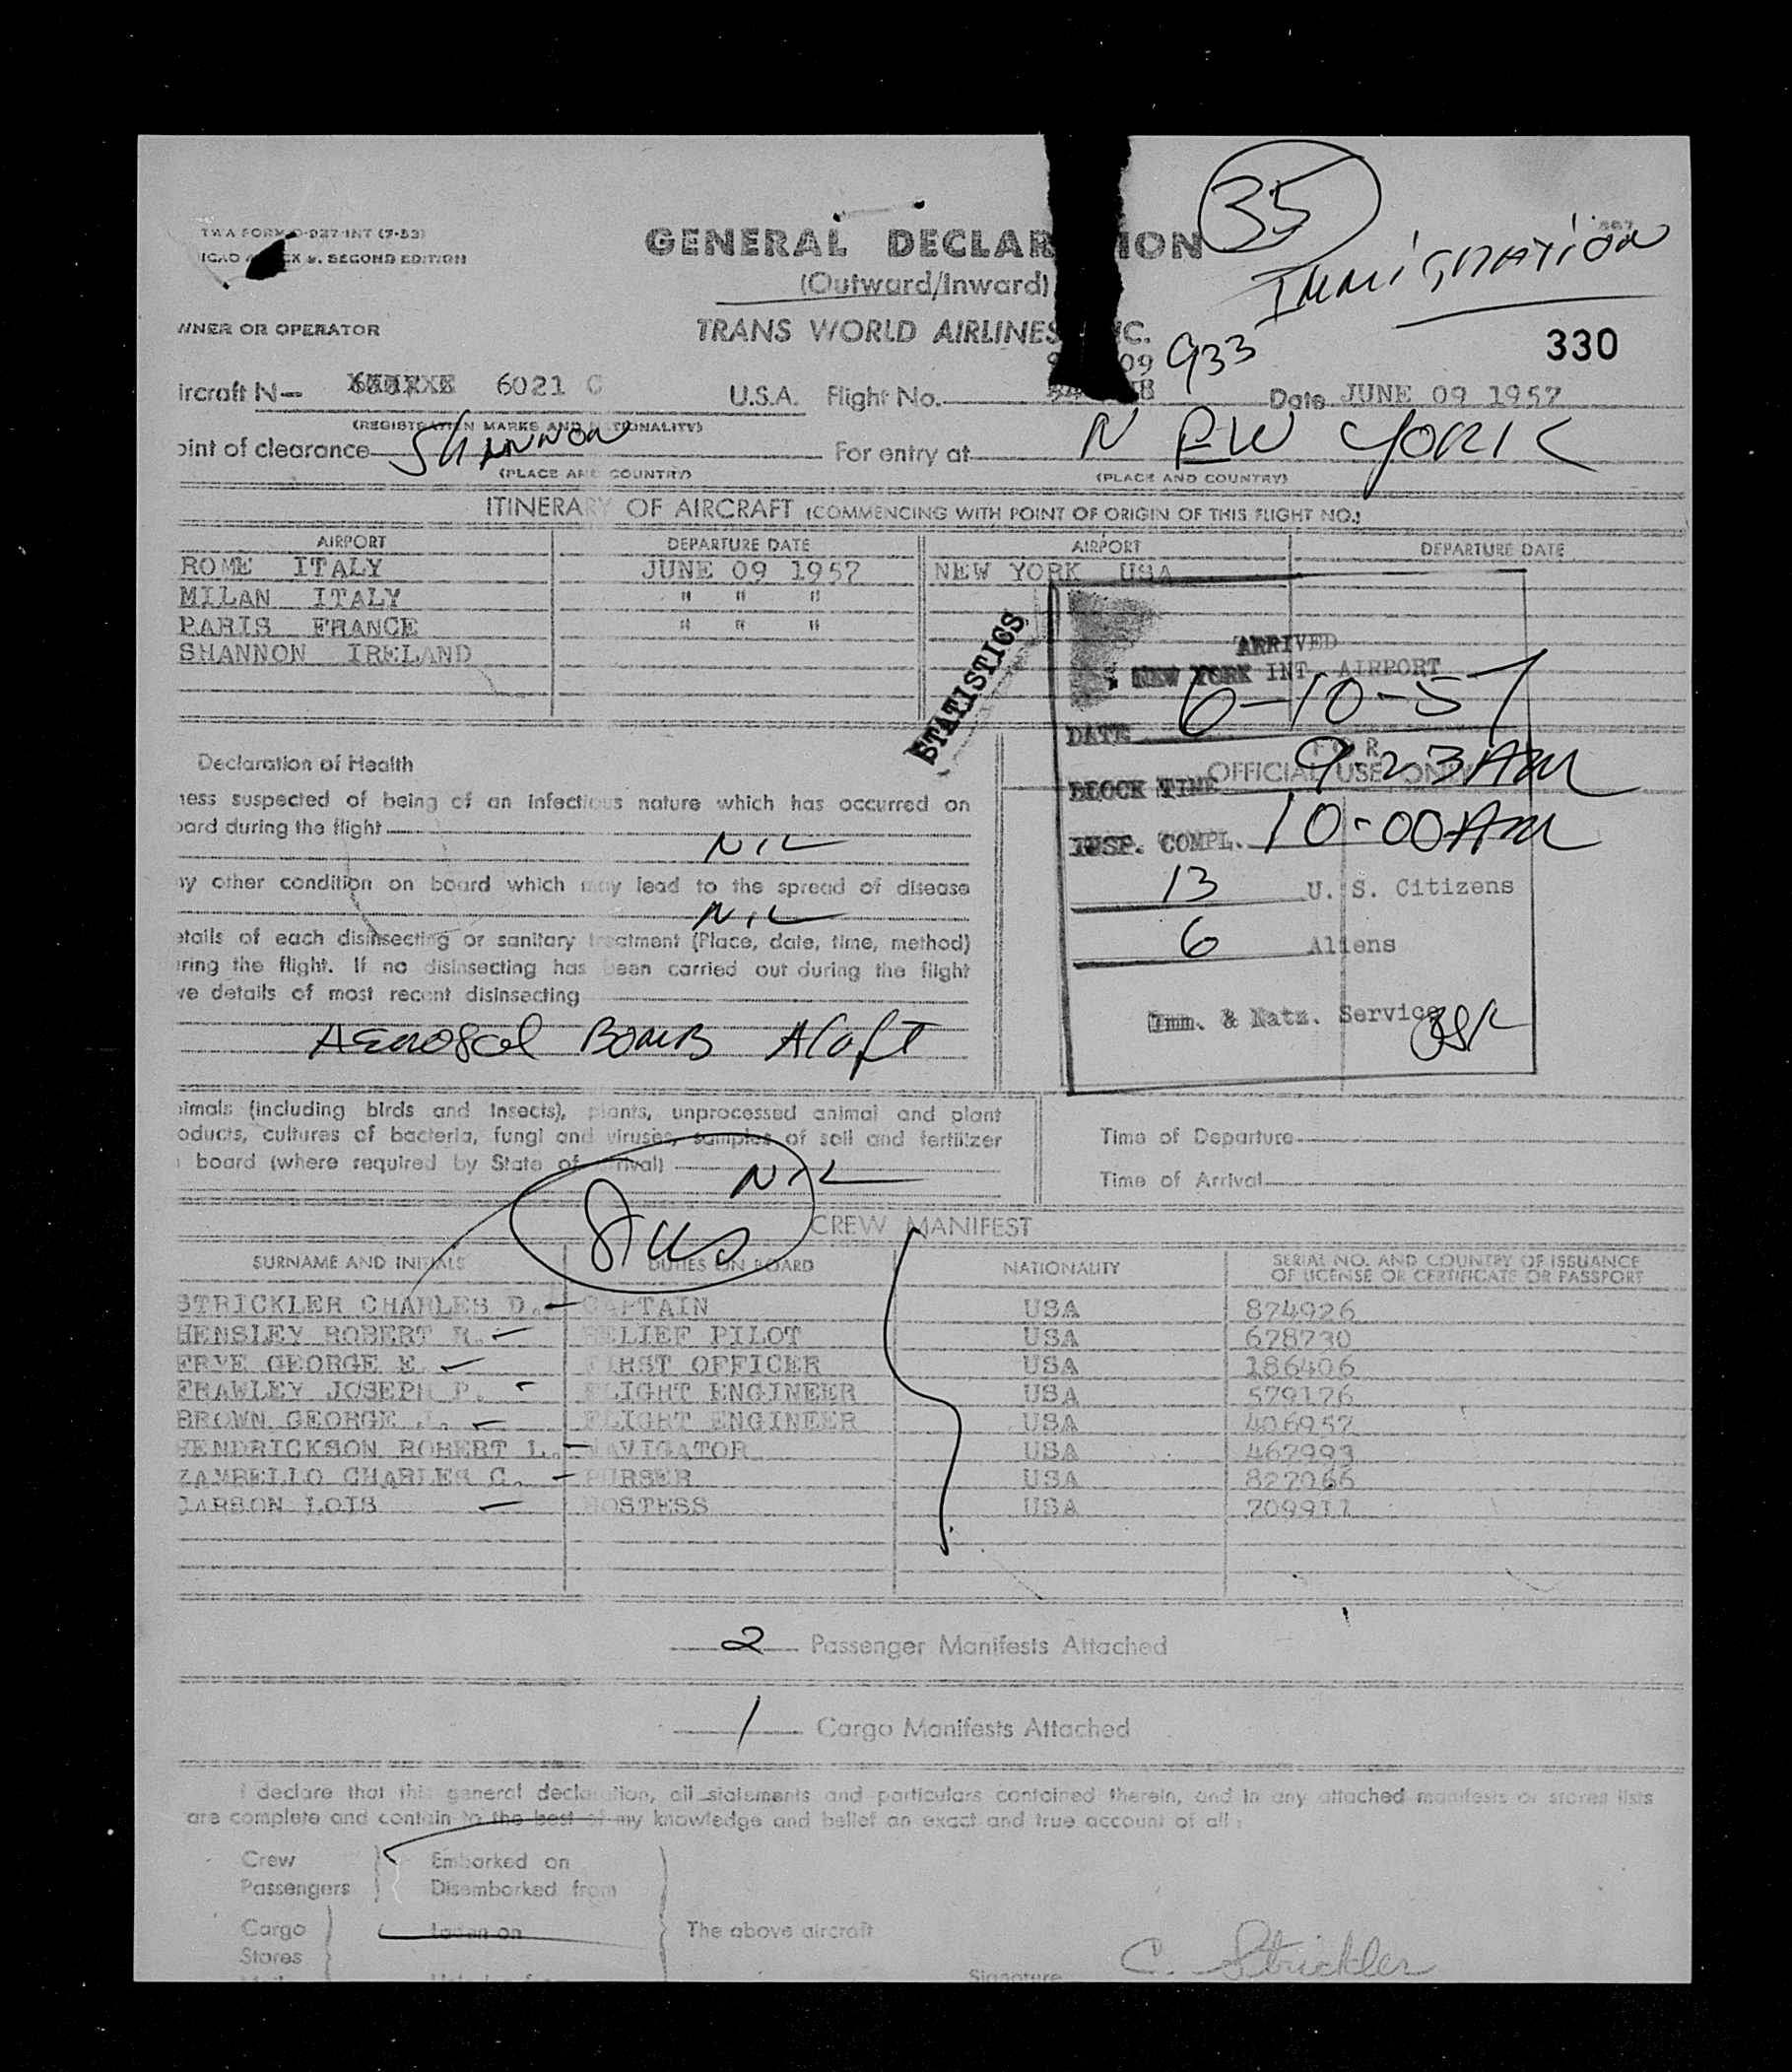 TWA FORM O-927-INT (7-53)
ICAO EX 9. SECOND EDITION
GENERAL DECLAR ION
(Outward/Inward)
35
Immigration
WNER OR OPERATOR
TRANS WORLD AIRLINES NC.
330
09 933
ircraft N— 6021 C U.S.A. Flight No. Date JUNE 09 1957
(REGISTRATION MARKS AND NATIONALITY)
oint of clearance SHANNON For entry at NEW YORK
(PLACE AND COUNTRY) (PLACE AND COUNTRY)
ITINERARY OF AIRCRAFT (COMMENCING WITH POINT OF ORIGIN OF THIS FLIGHT NO.)
AIRPORT DEPARTURE DATE AIRPORT DEPARTURE DATE
ROME ITALY JUNE 09 1957 NEW YORK USA
MILAN ITALY " " "
PARIS FRANCE " " "
SHANNON IRELAND
STATISTICS
ARRIVED
NEW YORK INT. AIRPORT
DATE 6-10-57
FOR
OFFICIAL USE ONLY
BLOCK TIME 9:23 AM
INSP. COMPL. 10:00 AM
13 U. S. Citizens
6 Aliens
Imm. & Natz. Service
Declaration of Health
ness suspected of being of an infectious nature which has occurred on
oard during the flight
NIL
ny other condition on board which may lead to the spread of disease
NIL
etails of each disinsecting or sanitary treatment (Place, date, time, method)
uring the flight. If no disinsecting has been carried out during the flight
ve details of most recent disinsecting
Aerosol Bomb Aloft
nimals (including birds and insects), plants, unprocessed animal and plant
oducts, cultures of bacteria, fungi and viruses, samples of soil and fertilizer
board (where required by State of arrival)
NIL
Time of Departure
Time of Arrival
CREW MANIFEST
SURNAME AND INITIALS DUTIES ON BOARD NATIONALITY SERIAL NO. AND COUNTRY OF ISSUANCE
OF LICENSE OR CERTIFICATE OR PASSPORT
STRICKLER CHARLES D. CAPTAIN USA 874926
HENSLEY ROBERT R. RELIEF PILOT USA 678730
FRYE GEORGE E. FIRST OFFICER USA 186406
FRAWLEY JOSEPH P. FLIGHT ENGINEER USA 579176
BROWN GEORGE J. FLIGHT ENGINEER USA 406957
HENDRICKSON ROBERT L. NAVIGATOR USA 467993
ZAMBELLO CHARLES C. PURSER USA 827066
LARSON LOIS HOSTESS USA 709911
2 Passenger Manifests Attached
1 Cargo Manifests Attached
I declare that this general declaration, all statements and particulars contained therein, and in any attached manifests or stores lists
are complete and contain to the best of my knowledge and belief an exact and true account of all:
Crew Embarked on
Passengers Disembarked from
Cargo Laden on The above aircraft
Stores
Signature C. Strickler